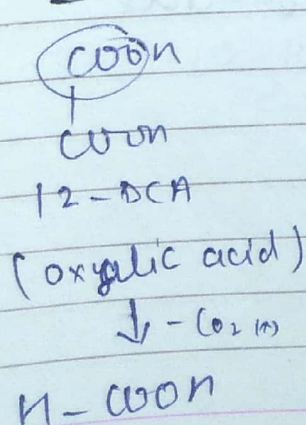 COOH
|
COOH
12-DCA
(oxyalic acid)
↓ -CO2 (↑)
H-COOH